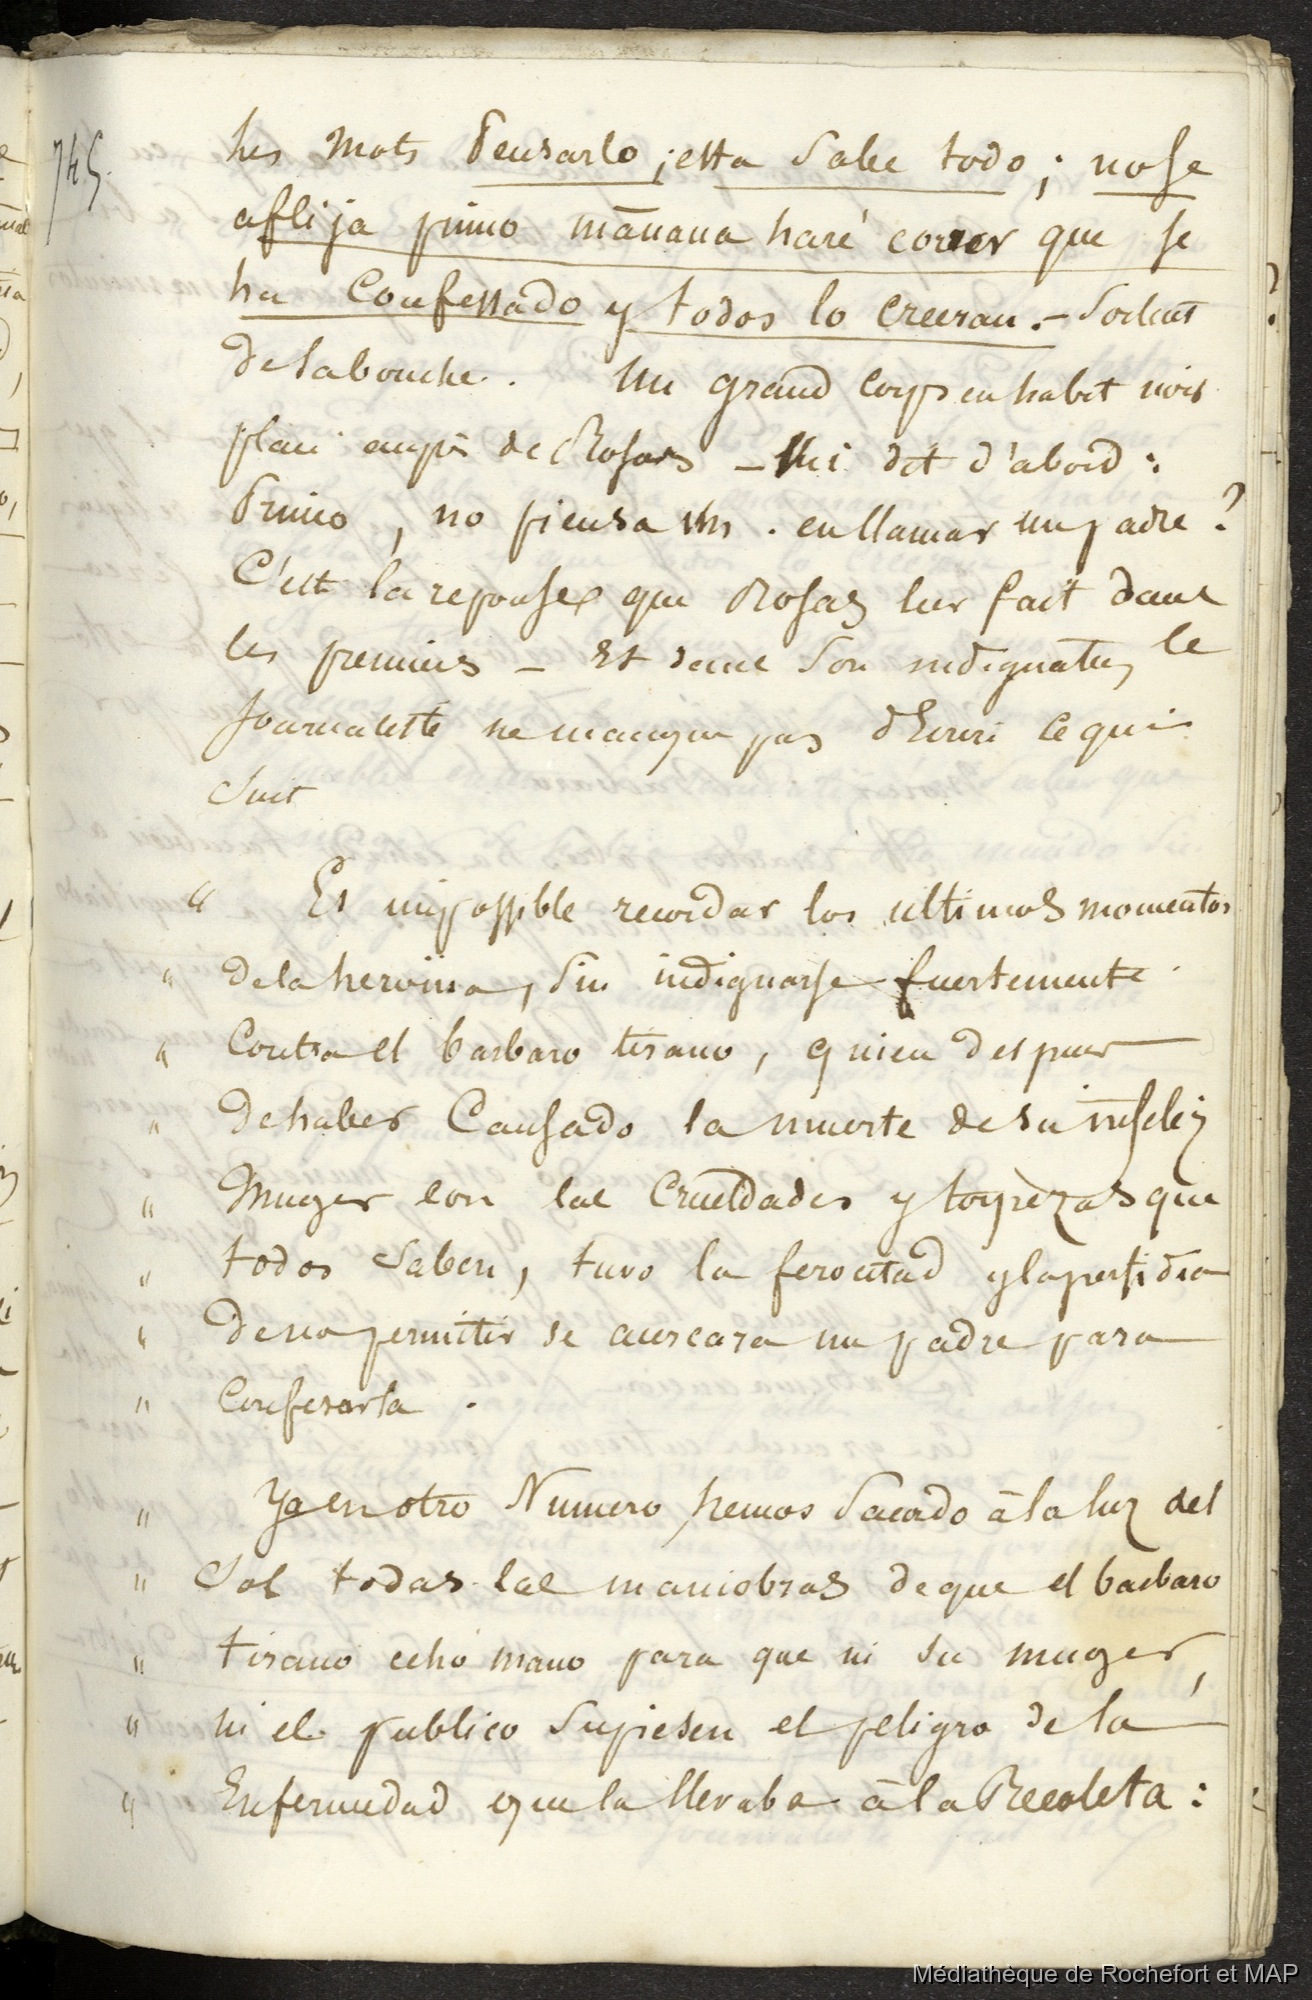 745.
les mots Pensarlo ; esta sabe todo ; no se
aflija primo mañana haré correr que se
ha Confessado y todos lo creeran. – Sortent
de la bouche. Un grand corps en habit noir
placé auprès de Rosas – lui dit d'abord :
Primo, no piensa Vm. en llamar un padre ?
C'est la reponse que Rosas lui fait dans
les premiers – Et dans son indignation, le
Journaliste ne manque pas d'Ecrire ce qui
Suit
" Es impossible recordar los ultimos momentos
" de la heroina, sin indignarse fuertemente
" Contra el barbaro tirano, quien despues
" de haber Causado la muerte de su infeliz
" Muger con las Crueldades y torpèzas que
" todos saben, tuvo la ferocitad y la perfidia
" de no permitir se acercara un padre para
" Confesarla .
" Ya en otro Numero hemos Sacado à la luz del
" Sol todas las maniobras de que el barbaro
" tirano echó mano para que ni su muger,
" ni el publico Supiesen el peligro de la
" Enfermedad que la llevaba à la Recoleta :
Médiathèque de Rochefort et MAP